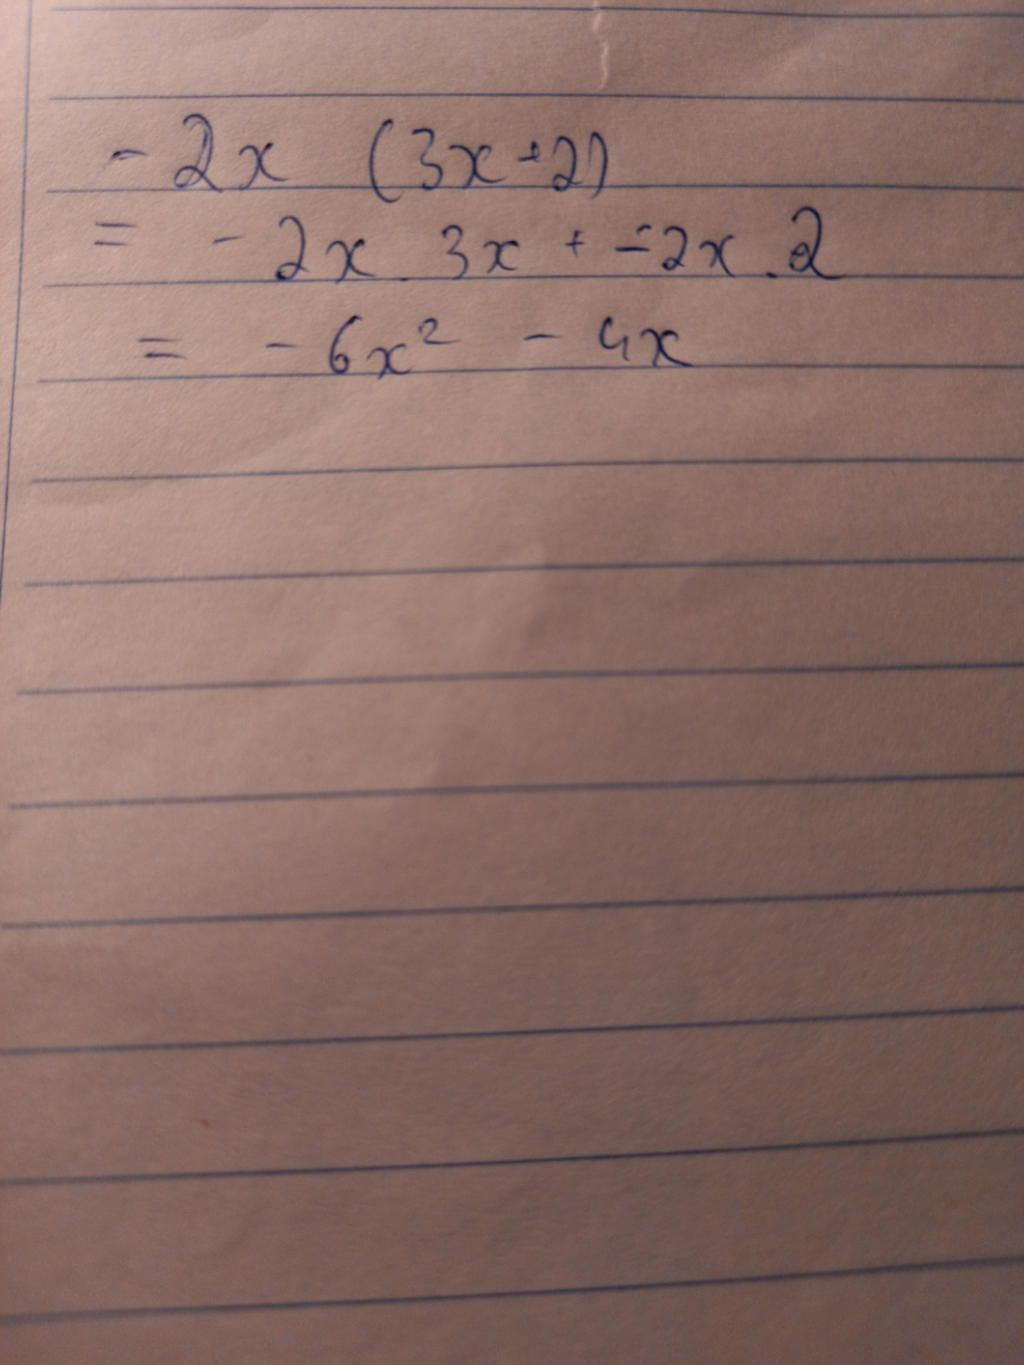 - 2x (3x+2)
= - 2x . 3x + -2x . 2
= - 6x² - 4x